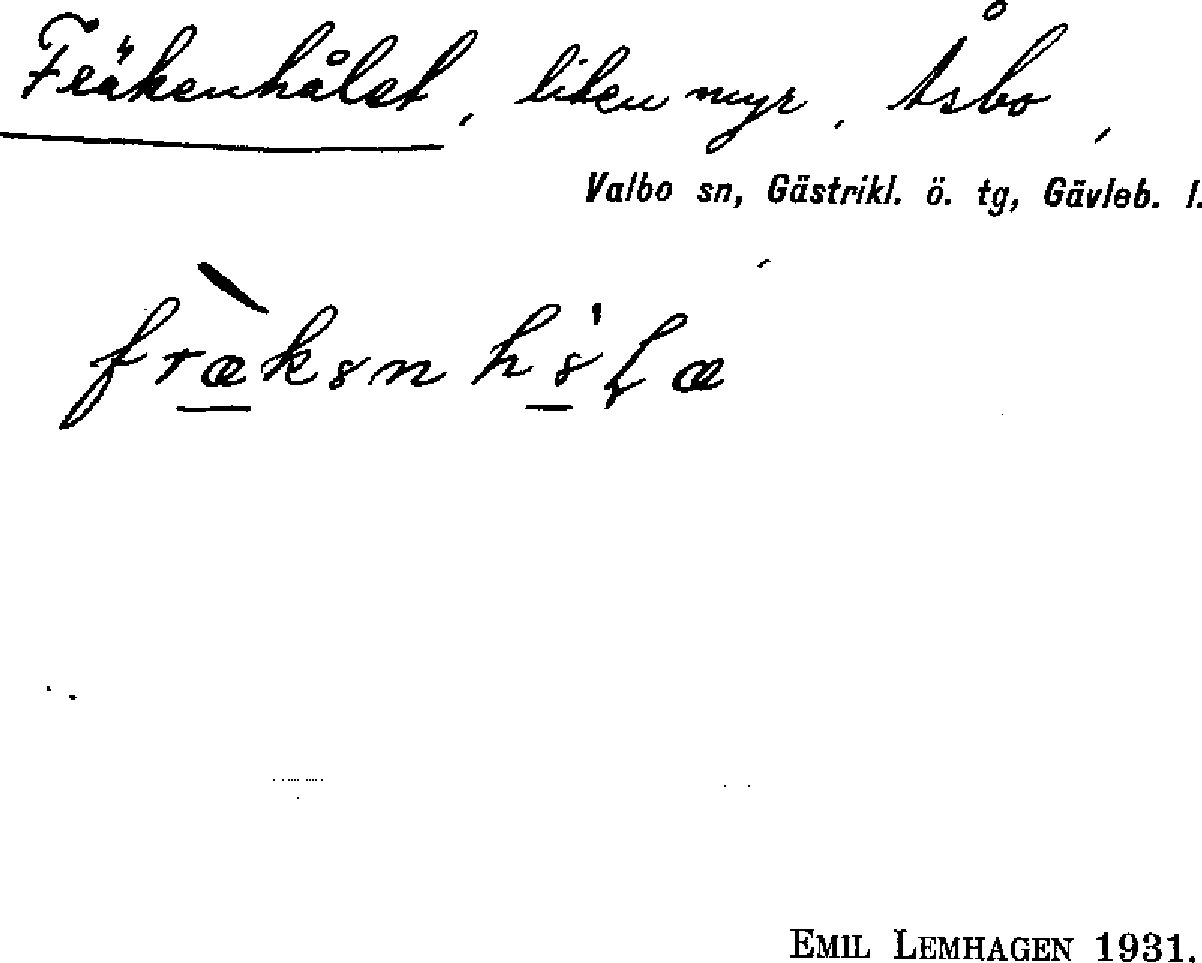 Fräkenhålet, liten myr, Åsbo,
Valbo sn, Gästrikl. ö. tg, Gävleb. l.
EMIL LEMHAGEN 1931.